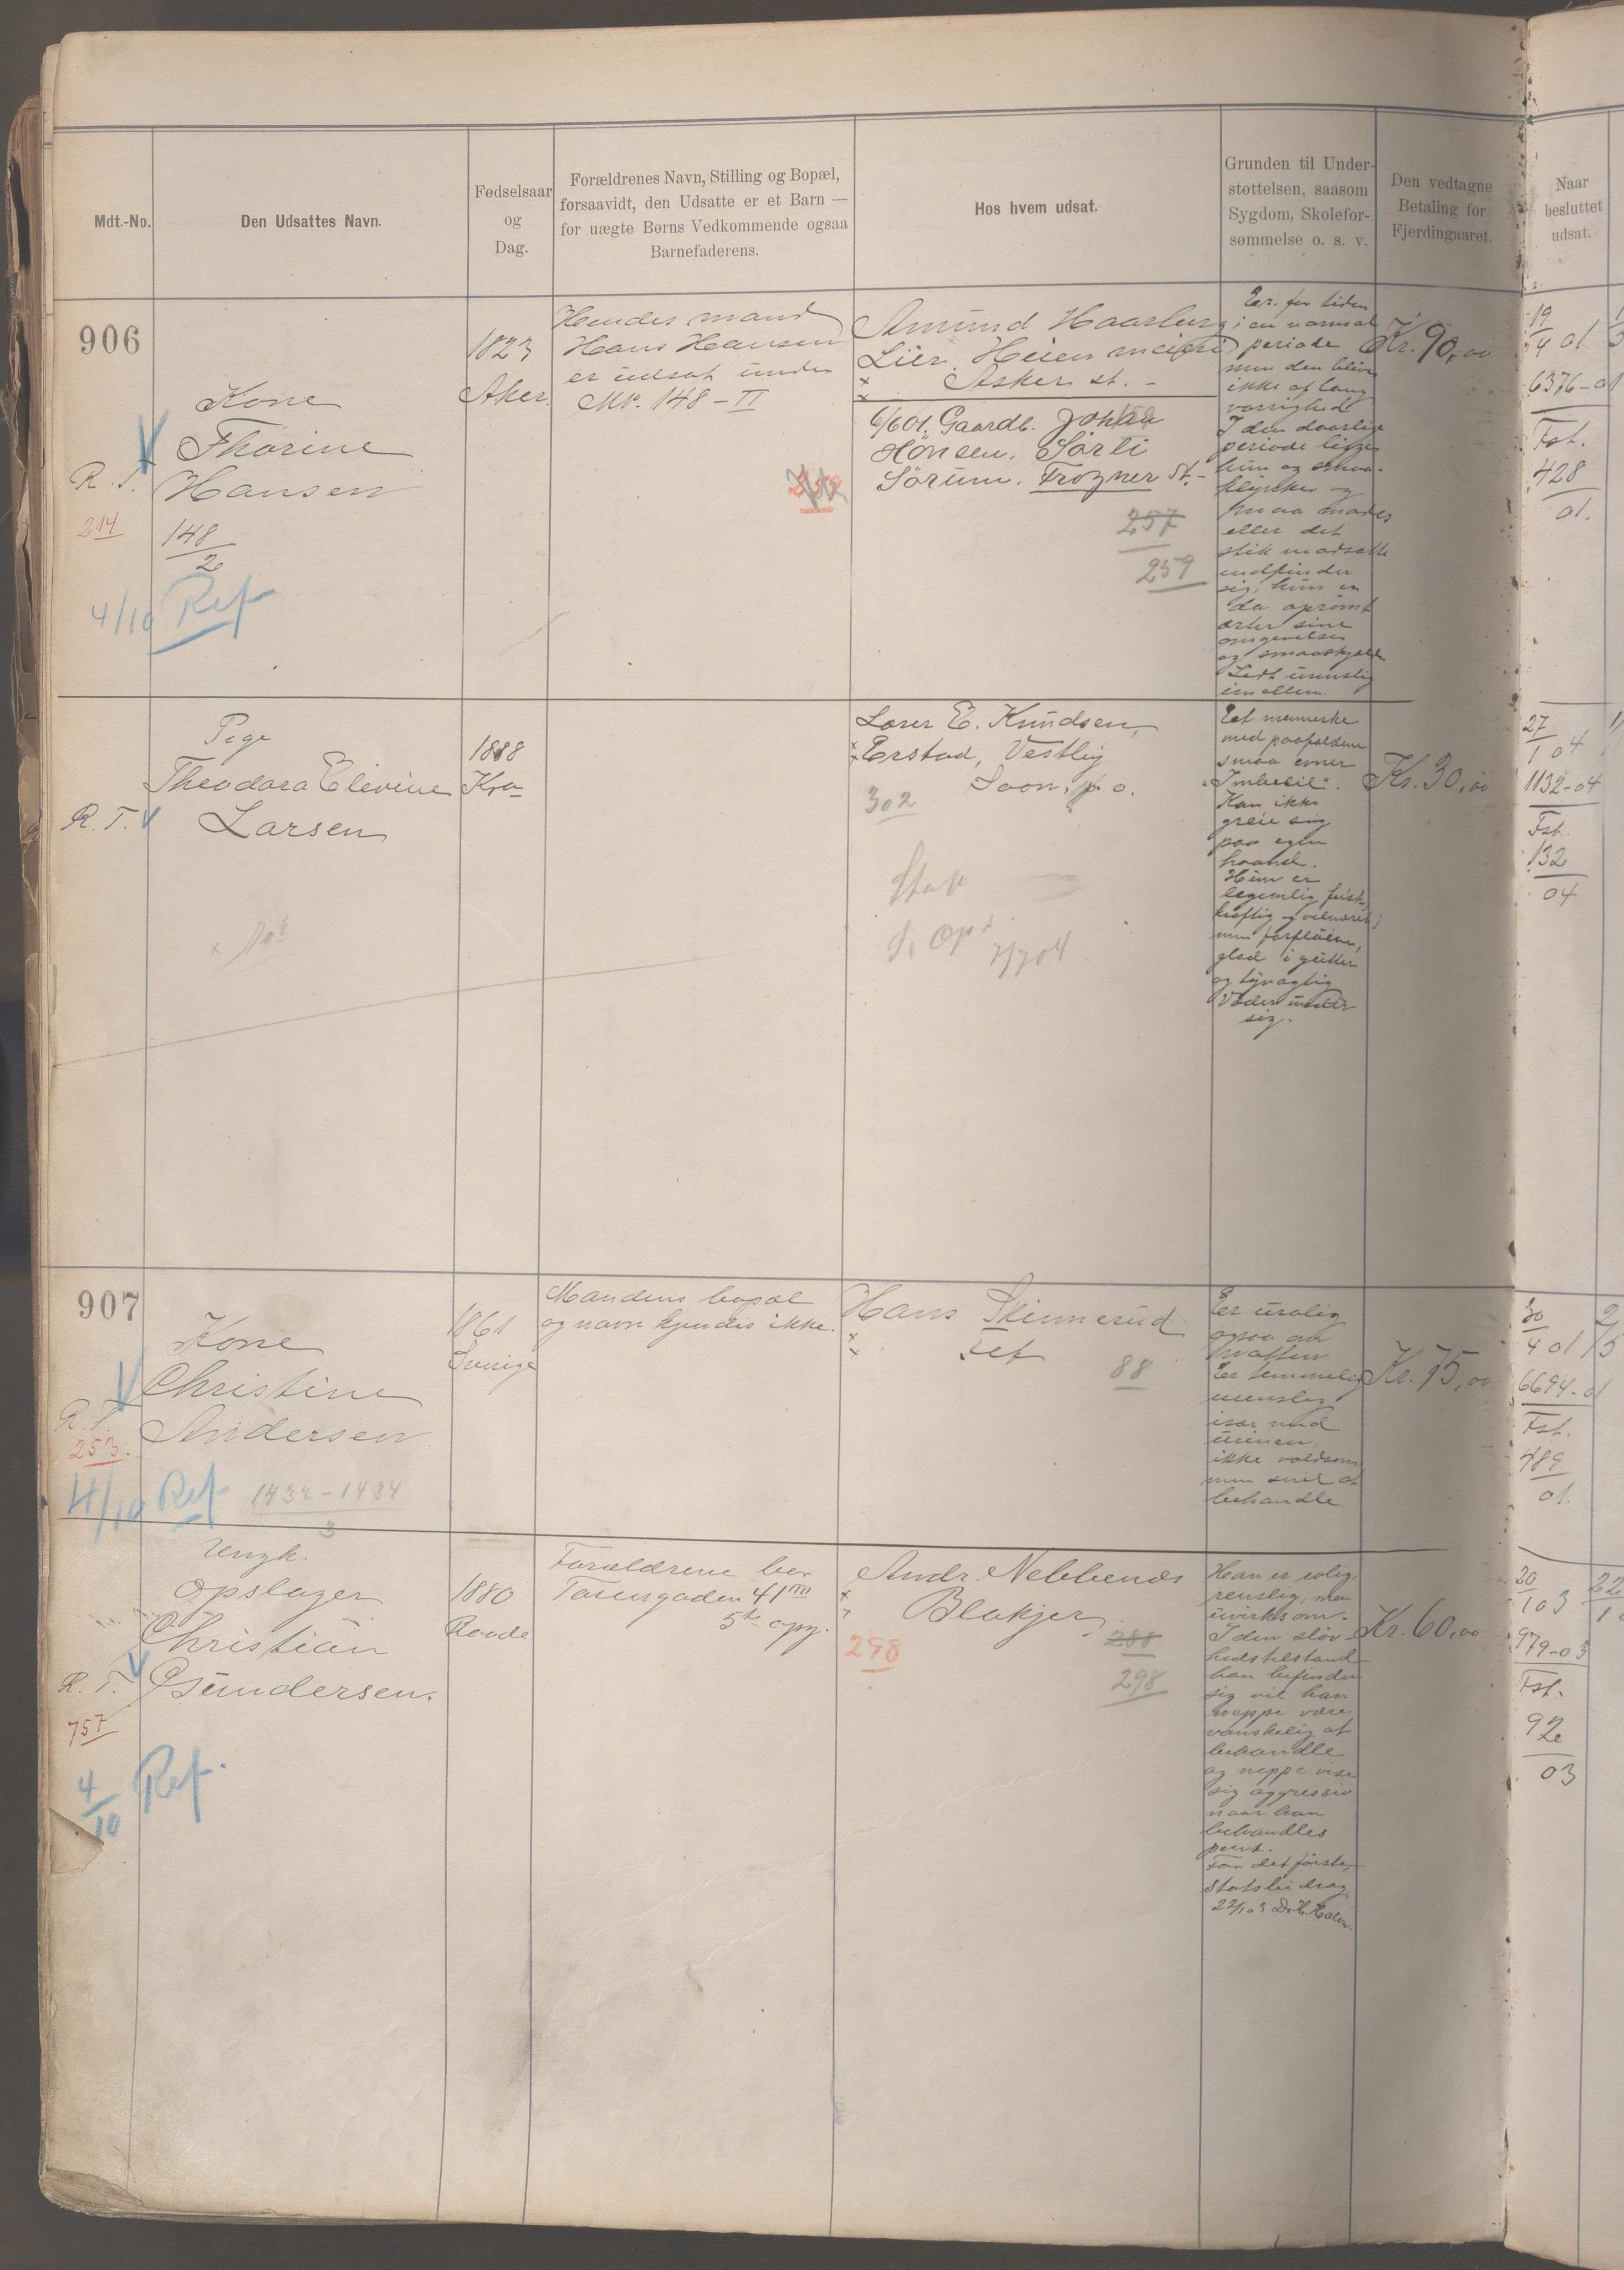 Mdt.-No.
Den Udsattes Navn.
Fødselsaar
og
Dag.
Forældrenes Navn, Stilling og Bopæl,
forsaavidt, den Udsatte er et Barn —
for uægte Børns Vedkommende ogsaa
Barnefaderens.
Hos hvem udsat.
Grunden til Under-
støttelsen, saasom
Sygdom, Skolefor-
sømmelse o. s. v.
Den vedtagne
Betaling for
Fjerdingaaret.
Naar
besluttet
udsat.
906
Kone
Thorine
Hansen
R. T.
214
148
2
4/10 Ref
1823
Aker.
Hendes mand
Hans Hansen
er udsat under
Mk. 148 – II
Amund Haarberg
Lier. Heien meieri
Asker st. –
6/6 01. Gaardb. Johan
Hönsen. Sörli
Sörum. Frogner St. –
257
259
Er for tiden
i en normal
periode
men den bliver
ikke af lang
varighed
I den daarlige
periode ligger
hun og smaa-
klynker og
maa mades
eller det
stik modsatte
indfinder
sig, hun er
da oprömt
erter sine
omgivelser
og smaaskjælder
Lidt urenslig
imellem.
Kr. 90,00
19
4 01
6376-01
Fst.
428
01.
Pige
Theodora Elevine
Larsen
R. T.
1888
Kra
Larer E. Knudsen,
Erstad, Vestby
Soon, p. o.
302
7/7 04
Et menneske
med paafaldende
smaa evner
"Imbecil".
Kan ikke
greie sig
paa egen
haand.
Hun er
legemlig frisk,
kraftig og velnæret;
men forflöien,
glad i gutter
og tyvagtig
Vader under
sig.
Kr. 30,00
27
1 04
1132-04
Fst.
132
04
907
Kone
Christine
Andersen
R. T.
253.
4/10 Ref 1432 – 1434
3
1861
Sverige
Mandens bopæl
og navn kjendes ikke.
Hans Skinnerud
Fet
88
Er urolig
ogsaa om
natten
Er temmelig
urenslig
især med
urinen
ikke voldsom
men snil at
behandle.
Kr. 75,00
30
4 01
6694-01
Fst.
489
01.
Ungk.
Opslager
Christian
Gundersen.
R. T.
757
4
10
Ref.
1880
Raade
Forældrene bor
Torvesgaden 41 III
5te opg.
Andr. Nebbenes
Blakjer
298
288
298
Han er rolig
renslig, men
uvirksom.
I den slöv-
hedstilstand
han befinder
sig vil han
neppe være
vanskelig at
behandle
og neppe vise
sig aggressiv
naar han
behandles
pent.
Fra det første,
statsbidrag
22/1 03 Dr. H. Holm.
Kr. 60,00
20
1 03
979-03
Fst.
92
03